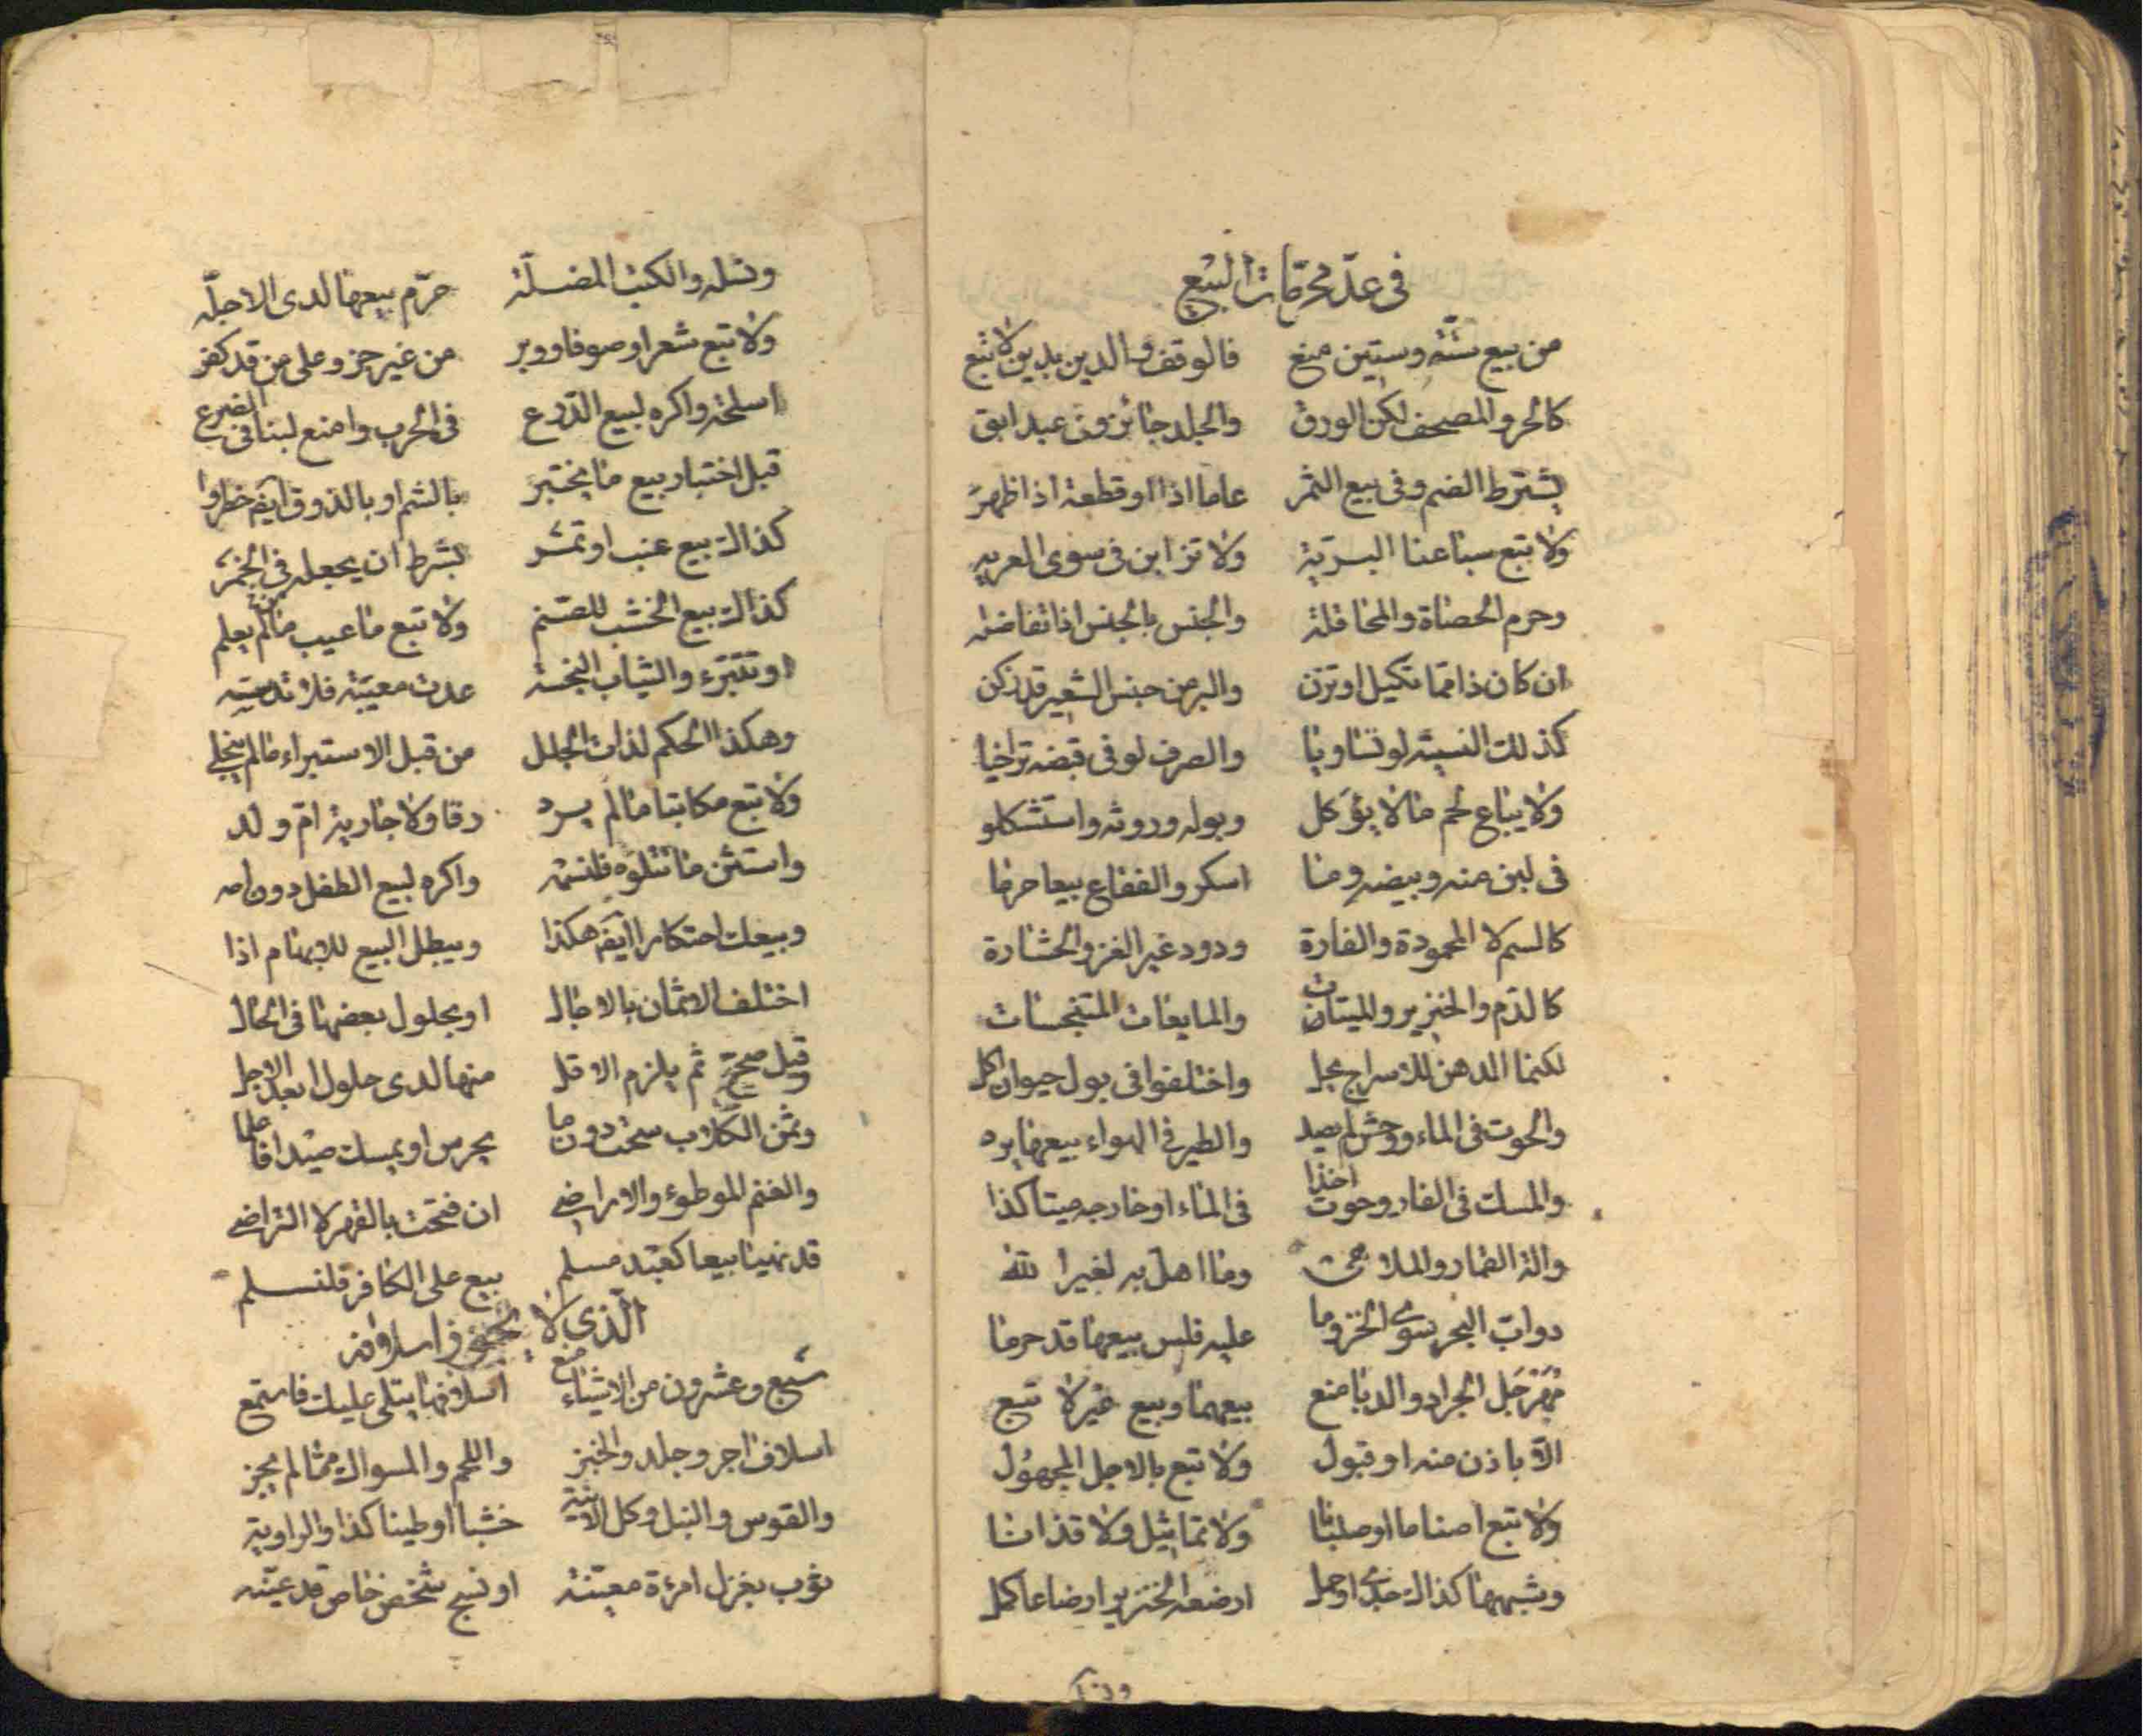 في عدّ محرّمات البيع
من بيع ستّة وستين منع فالوقف والدين بدين لا تبع
كالحر والمصحف لكن الورق والجلد جائزون عبد ابق
بشترط الضم وفي بيع الثمر عاما اذا او قطعة اذا ظهر
ولا تبع سباعنا البريّة ولا تزابن في سوى العريه
وحرم الحصاة والمحاقلة والجنس بالجنس اذا تفاضله
ان كان ذا مما تكيل او تزن والبر من جنس الشعير قد زكن
كذلك النسيه لو تساويا والصرف لو في قبضه تراخيا
ولا يباع لحم ما لا يؤكل وبوله وروثه واستشكلو
في لبن منه وبيضه وما اسكر والفقاع بيعا حرما
كالسم لا المحمودة والفارة ودود غير القز والحشارة
كالدم والخنزير والميتات والمايعات المتنجسات
لكنما الدهن للاسراج يحل واختلفوا في بول حيوان اكل
والحوت في الماء ووحش لم يصد والطير في الهواء بيعها يرد
والمسك في الفار وحوت اخذا في الماء او خارجه ميتا كذا
والة القمار والملاهي وما اهل به لغير الله
دوابّ البحر سوى الخز وما عليه فلس بيعها قد حرما
الجراد والدبا منع بيعهما وبيع غير لا تبع
الّا باذن منه او قبول ولا تبع بالاجل المجهول
ولا تبع اصناما او صلبانا ولا تماثيل ولا قذانا
وشبهها كذاك جدي او حمل ارضعه الخنزير ارضاعا كمل
ونسله والكتب المضلّة حرّم بيعها لدى الاجلّه
ولا تبع شعرا وصوفا ووبر من غير جز وعلى من قد كفر
اسلحة واكره لبيع الدّرع في الحرب وامنع لبنا في الضرع
قبل اختبار بيع ما يختبر بالشم او بالذوق ايضا حظروا
كذاك بيع عنب او تمر بشرط ان يجعله في الخمر
كذاك بيع الخشب للصنم ولا تبع ما عيب ما لم يعلم
او تتبرّء والثياب النجسة عدت معيبة فلا تدلسه
وهكذا الحكم لذات الحلل من قبل الاستبراء ما لم ينجلي
ولا تبع مكاتبا ما لم يرد رقا ولا جارية امّ ولد
واستثن ما تتلوه فلنسمه واكره لبيع الطفل دون امه
وبيعك احتكارا ايضا هكذا ويبطل البيع للابهام اذا
اختلف الاثمان بالاجال او بحلول بعضها في الحال
وقيل صحّ ثم يلزم الاقل منها لدى حلول ابعد الاجل
وثمن الكلاب سحت دون ما يحرس او يمسك صيدا فاعلما
والغنم الموطوء والاراضي ان فتحت بالقهر لا التراضي
قد نهينا بيعا كعبد مسلم بيع على الكافر فلنسلم
الّذي لا يجوز اسلافه
سبع وعشرون من الاشياء منع اسلافها يتلى عليك فاستمع
اسلاف اجر وجلد والخبز واللحم والمسواك مما لم يجز
والقوس والنبل وكل الانية خشبا او طينا كذا والراوية
ثوب بغزل امرءة معيّنة او نسج شخص خاص قد عيّنه